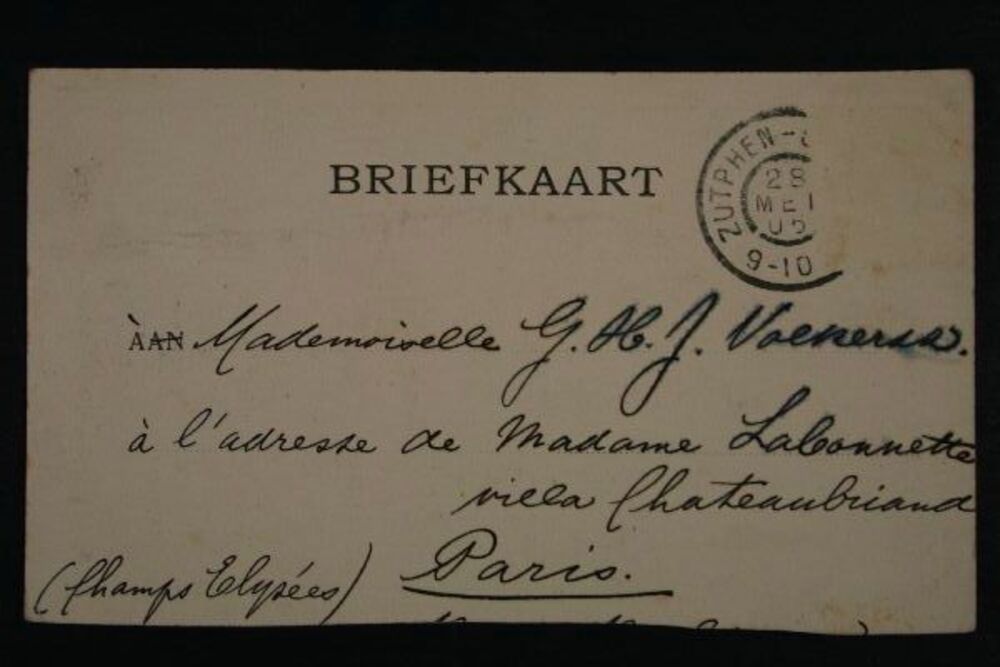 BRIEFKAART
ZUTPHEN-
28
MEI
05
9-10
À AAN Mademoiselle G. H. J. Volkersz.
à l'adresse de Madame Labonnette
villa Chateaubriand
(Champs Elysées) Paris.